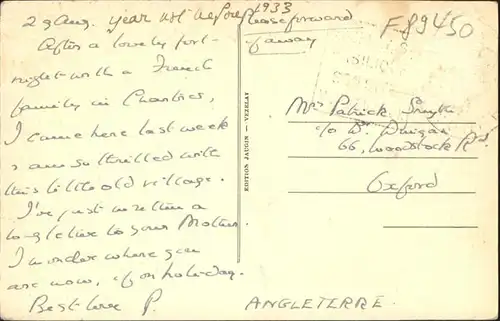 23 Aug. year not before 1933
After a lovely fort-
night with a French
family in Chartres,
I came here last week
& am so thrilled with
this little old village.
I've just written a
long letter to your Mother.
I wonder where you
are now, if on holiday.
Best love P.
EDITION JAUDIN - VEZELAY
Please forward
if away
F89450
Mrs Patrick Smyth
c/o Dr Duigan
66, Woodstock Rd
Oxford
ANGLETERRE.